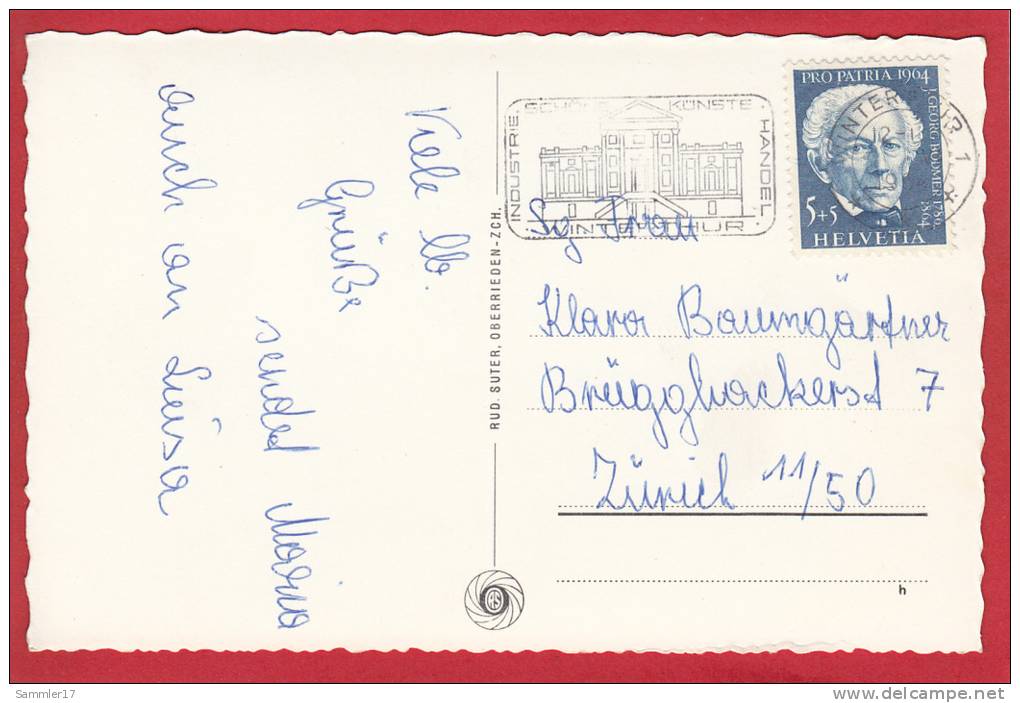 Viele lb.
Grüße
sended Maria
Auch an Luisa
RUD. SUTER, OBERRIEDEN-ZCH.
INDUSTRIE, SCHÖNE KÜNSTE, HANDEL
WINTERTHUR
WINTERTHUR 1
PRO PATRIA 1964
J. GEORG BODMER 1786-1864
5+5
HELVETIA
Frau
Klara Baumgärtner
Brügghackerst 7
Zürich 11/50
h
Sammler17
www.delcampe.net